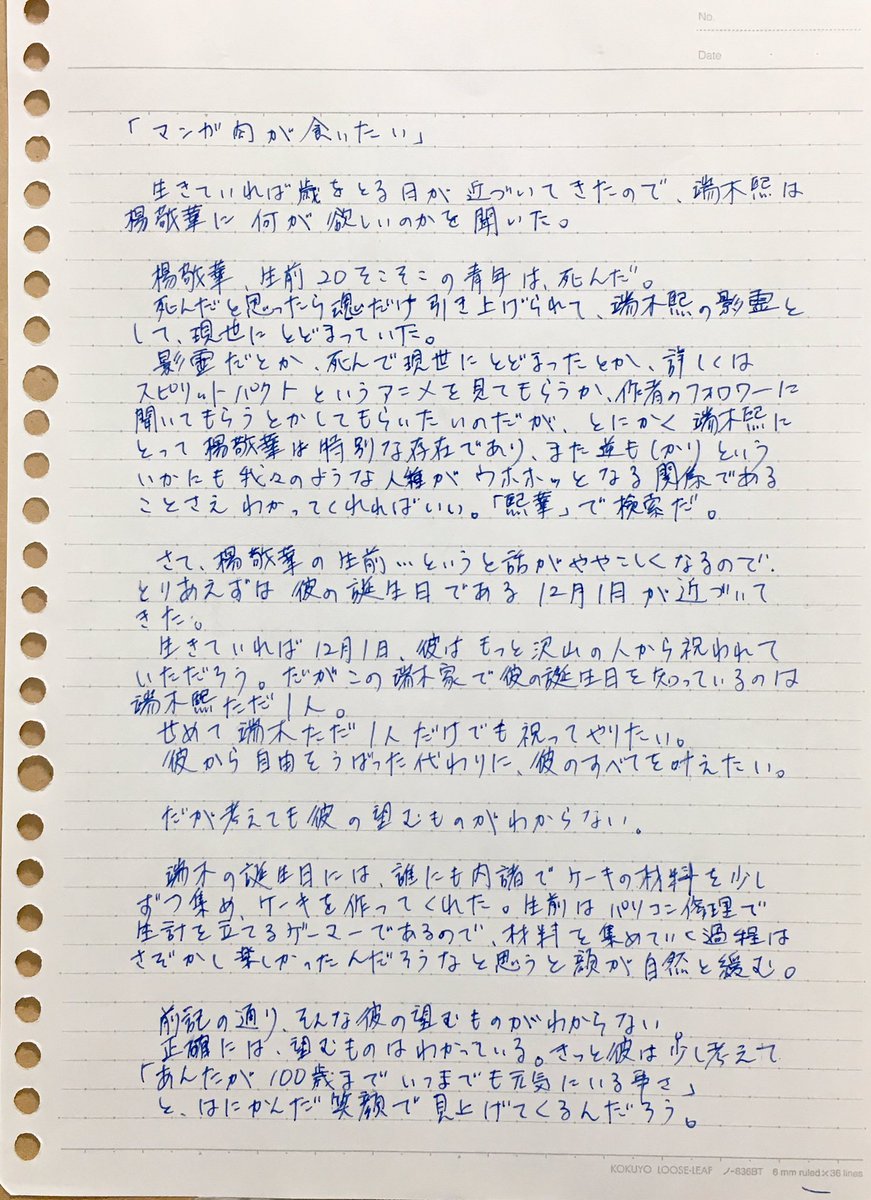 No.
Date
「マンガ肉が食いたい」
生きていれば歳をとる日が近づいてきたので、端木熙は
楊敬華に何が欲しいのかを聞いた。
楊敬華、生前20そこそこの青年は、死んだ。
死んだと思ったら魂だけ引き上げられて、端木熙の影霊と
して、現世にとどまっていた。
影霊だとか、死んで現世にとどまったとか、詳しくは
スピリットパクトというアニメを見てもらうか、作者のフォロワーに
聞いてもらうとかしてもらいたいのだが、とにかく端木熙に
とって楊敬華は特別な存在であり、また逆もしかりという
いかにも我々のような人種がウホホッとなる関係である
ことさえわかってくれればいい。「熙華」で検索だ。
さて、楊敬華の生前…というと話がややこしくなるので、
とりあえずは彼の誕生日である12月1日が近づいて
きた。
生きていれば12月1日、彼はもっと沢山の人から祝われて
いただろう。だがこの端木家で彼の誕生日を知っているのは
端木熙ただ1人。
せめて端木ただ1人だけでも祝ってやりたい。
彼から自由をうばった代わりに、彼のすべてを叶えたい。
だが考えても彼の望むものがわからない。
端木の誕生日には、誰にも内諸でケーキの材料を少し
ずつ集め、ケーキを作ってくれた。生前はパソコン修理で
生計を立てるゲーマーであるので、材料を集めていく過程は
さぞかし楽しかったんだろうなと思うと顔が自然と緩む。
前記の通り、そんな彼の望むものがわからない。
正確には、望むものはわかっている。きっと彼は少し考えて
「あんたが100歳までいつまでも元気にいる事さ」
と、はにかんだ笑顔で見上げてくるんだろう。
KOKUYO LOOSE-LEAF ノ-836BT 6 mm ruled×36 lines